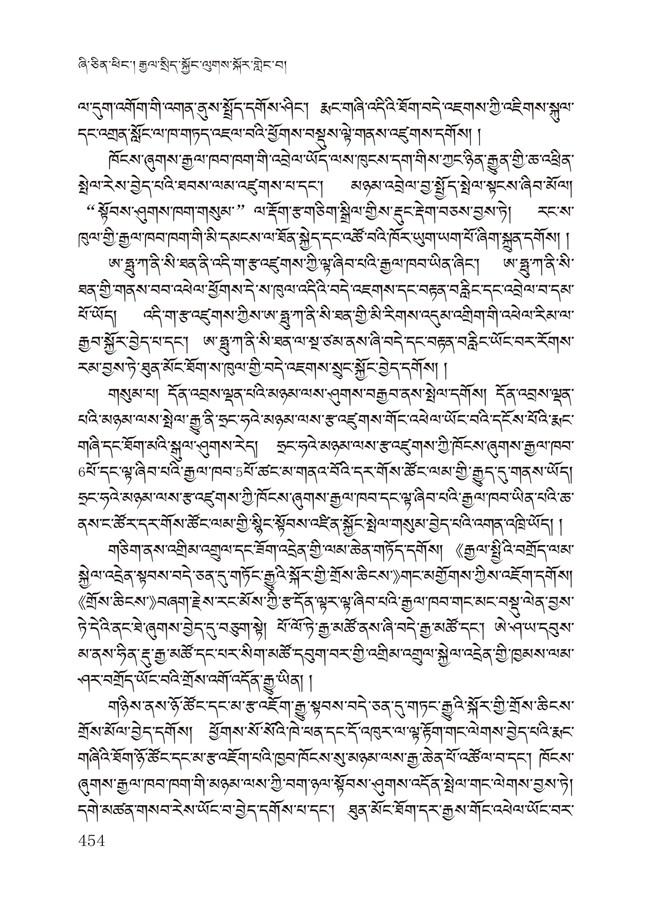 ཞི་ཅིན་ཕིང་། རྒྱལ་སྲིད་སྐྱོང་ལུགས་སྐོར་གླེང་བ།
ལ་དྭག་འགོག་གི་འགན་ནུས་སྤྲོད་དགོས་ཤིང་། རྨང་གཞི་འདིའི་ཐོག་བདེ་འཇགས་ཀྱི་འཇིགས་སྐུལ་
དང་འགྲན་སློང་ལ་ཁ་གཏད་འཇལ་བའི་ཕྱོགས་བསྡུས་ལྟེ་གནས་འཛུགས་དགོས། །
ཁོངས་ཞུགས་རྒྱལ་ཁབ་ཁག་གི་འབྲེལ་ཡོད་ལས་ཁུངས་དག་གིས་ཀྱང་ཉིན་རྒྱུན་གྱི་ཆ་འཕྲིན་
སྤེལ་རེས་བྱེད་པའི་ཐབས་ལམ་འཛུགས་པ་དང་། མཉམ་འབྲེལ་བྱ་སྤྱོད་སྤེལ་སྟངས་ཞིབ་མོལ།
“སྟོབས་ཤུགས་ཁག་གསུམ་” ལ་རྡོག་རྩ་གཅིག་སྒྲིལ་གྱིས་རྡུང་རྡེག་བཅས་བྱས་ཏེ། རང་ས་
ཁུལ་གྱི་རྒྱལ་ཁབ་ཁག་གི་མི་དམངས་ལ་ཐོན་སྐྱེད་དང་འཚོ་བའི་ཁོར་ཡུག་ཡག་པོ་ཞིག་སྐྲུན་དགོས། །
ཨ་ཧྥུ་ཀ་ནི་སི་ཐན་ནི་འདི་གྲྭ་འཛུགས་ཀྱི་ལྟ་ཞིབ་པའི་རྒྱལ་ཁབ་ཡིན་ཞིང་། ཨ་ཧྥུ་ཀ་ནི་སི་
ཐན་གྱི་གནས་བབ་འཕེལ་ཕྱོགས་དེ་ས་ཁུལ་འདིའི་བདེ་འཇགས་དང་བརྟན་བརླིང་དང་འབྲེལ་བ་དམ་
པོ་ཡོད། འདི་གྲྭ་འཛུགས་ཀྱིས་ཨ་ཧྥུ་ཀ་ནི་སི་ཐན་གྱི་མི་རིགས་འདུམ་འགྲིག་གི་འཕེལ་རིམ་ལ་
རྒྱབ་སྐྱོར་བྱེད་པ་དང་། ཨ་ཧྥུ་ཀ་ནི་སི་ཐན་ལ་སྔ་ཙམ་ནས་ཞི་བདེ་དང་བརྟན་བརླིང་ཡོང་བར་རོགས་
རམ་བྱས་ཏེ་ཐུན་མོང་ཐོག་ས་ཁུལ་གྱི་བདེ་འཇགས་སྲུང་སྐྱོང་བྱེད་དགོས། །
གསུམ་པ། དོན་འབྲས་ལྡན་པའི་མཉམ་ལས་ཤུགས་བརྒྱབ་ནས་སྤེལ་དགོས། དོན་འབྲས་ལྡན་
པའི་མཉམ་ལས་སྤེལ་རྒྱུ་ནི་ཧྲང་ཧའེ་མཉམ་ལས་རྩ་འཛུགས་གོང་འཕེལ་ཡོང་བའི་དངོས་པོའི་རྨང་
གཞི་དང་ཐོག་མའི་སྐུལ་ཤུགས་རེད། ཧྲང་ཧའེ་མཉམ་ལས་རྩ་འཛུགས་ཀྱི་ཁོངས་ཞུགས་རྒྱལ་ཁབ་
6པོ་དང་ལྟ་ཞིབ་པའི་རྒྱལ་ཁབ་5པོ་ཚང་མ་གནའ་བོའི་དར་གོས་ཚོང་ལམ་གྱི་རྒྱུད་དུ་གནས་ཡོད།
ཧྲང་ཧའེ་མཉམ་ལས་རྩ་འཛུགས་ཀྱི་ཁོངས་ཞུགས་རྒྱལ་ཁབ་དང་ལྟ་ཞིབ་པའི་རྒྱལ་ཁབ་ཡིན་པའི་ཆ་
ནས་ང་ཚོར་དར་གོས་ཚོང་ལམ་གྱི་སྙིང་སྟོབས་འཛིན་སྐྱོང་སྤེལ་གསུམ་བྱེད་པའི་འགན་འཁྲི་ཡོད། །
གཅིག་ནས་འགྲིམ་འགྲུལ་དང་ཟོག་འདྲེན་གྱི་ལམ་ཆེན་གཏོད་དགོས། 《རྒྱལ་སྤྱིའི་བགྲོད་ལམ་
སྐྱེལ་འདྲེན་སྟབས་བདེ་ཅན་དུ་གཏོང་རྒྱུའི་སྐོར་གྱི་གྲོས་ཆིངས་》གང་མགྱོགས་ཀྱིས་འཇོག་དགོས།
《གྲོས་ཆིངས་》བཞག་རྗེས་རང་མོས་ཀྱི་རྩ་དོན་ལྟར་ལྟ་ཞིབ་པའི་རྒྱལ་ཁབ་གང་མང་བསྡུ་ལེན་བྱས་
ཏེ་དེའི་ནང་ཐེ་ཞུགས་བྱེད་དུ་བཅུག་སྟེ། པོ་ལོ་ཏི་རྒྱ་མཚོ་ནས་ཞི་བདེ་རྒྱ་མཚོ་དང་། ཨེ་ཤ་ཡ་དབུས་
མ་ནས་ཧིན་རྡུ་རྒྱ་མཚོ་དང་པར་སིག་མཚོ་དབུག་བར་གྱི་འགྲིམ་འགྲུལ་སྐྱེལ་འདྲེན་གྱི་ཁྱམས་ལམ་
ཤར་བགྲོད་ཡོང་བའི་གྲོས་འགོ་འདོན་རྒྱུ་ཡིན། །
གཉིས་ནས་ཉོ་ཚོང་དང་མ་རྩ་འཇོག་རྒྱུ་སྟབས་བདེ་ཅན་དུ་གཏང་རྒྱུའི་སྐོར་གྱི་གྲོས་ཆིངས་
གྲོས་མོལ་བྱེད་དགོས། ཕྱོགས་སོ་སོའི་ཁེ་ཕན་དང་དོ་འཁུར་ལ་ལྟ་རྟོག་གང་ལེགས་བྱེད་པའི་རྨང་
གཞིའི་ཐོག་ཉོ་ཚོང་དང་མ་རྩ་འཇོག་པའི་ཁྱབ་ཁོངས་སུ་མཉམ་ལས་རྒྱ་ཆེན་པོ་འཚོལ་བ་དང་། ཁོངས་
ཞུགས་རྒྱལ་ཁབ་ཁག་གི་མཉམ་ལས་ཀྱི་བག་ཉལ་སྟོབས་ཤུགས་འདོན་སྤེལ་གང་ལེགས་བྱས་ཏེ།
དགེ་མཚན་གསབ་རེས་ཡོང་བ་བྱེད་དགོས་པ་དང་། ཐུན་མོང་ཐོག་དར་རྒྱས་གོང་འཕེལ་ཡོང་བར་
454